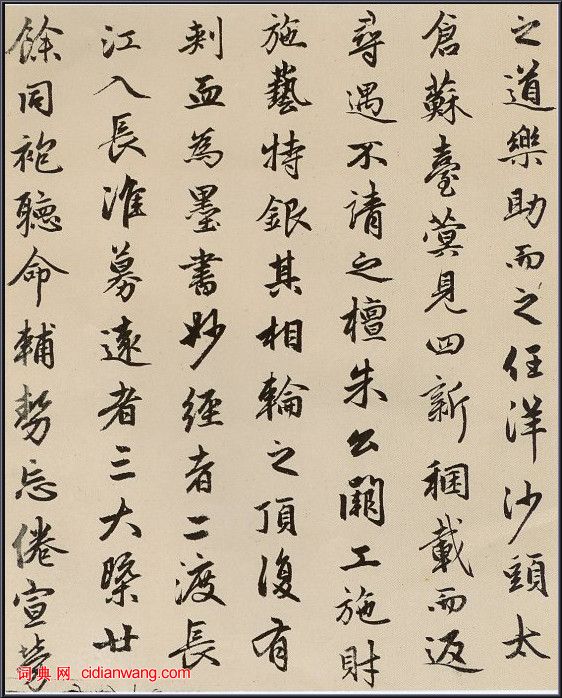 之道樂助而之任洋沙頭太
倉蘇臺蓂見四新稛載而返
尋遇不請之檀朱公闢工施財
施藝特銀其相輪之頂復有
刺血為墨書妙經者二渡長
江入長淮募遠者三大槩廿
餘同袍聽命輔勢忘倦宣勞
词典网 cidianwang.com